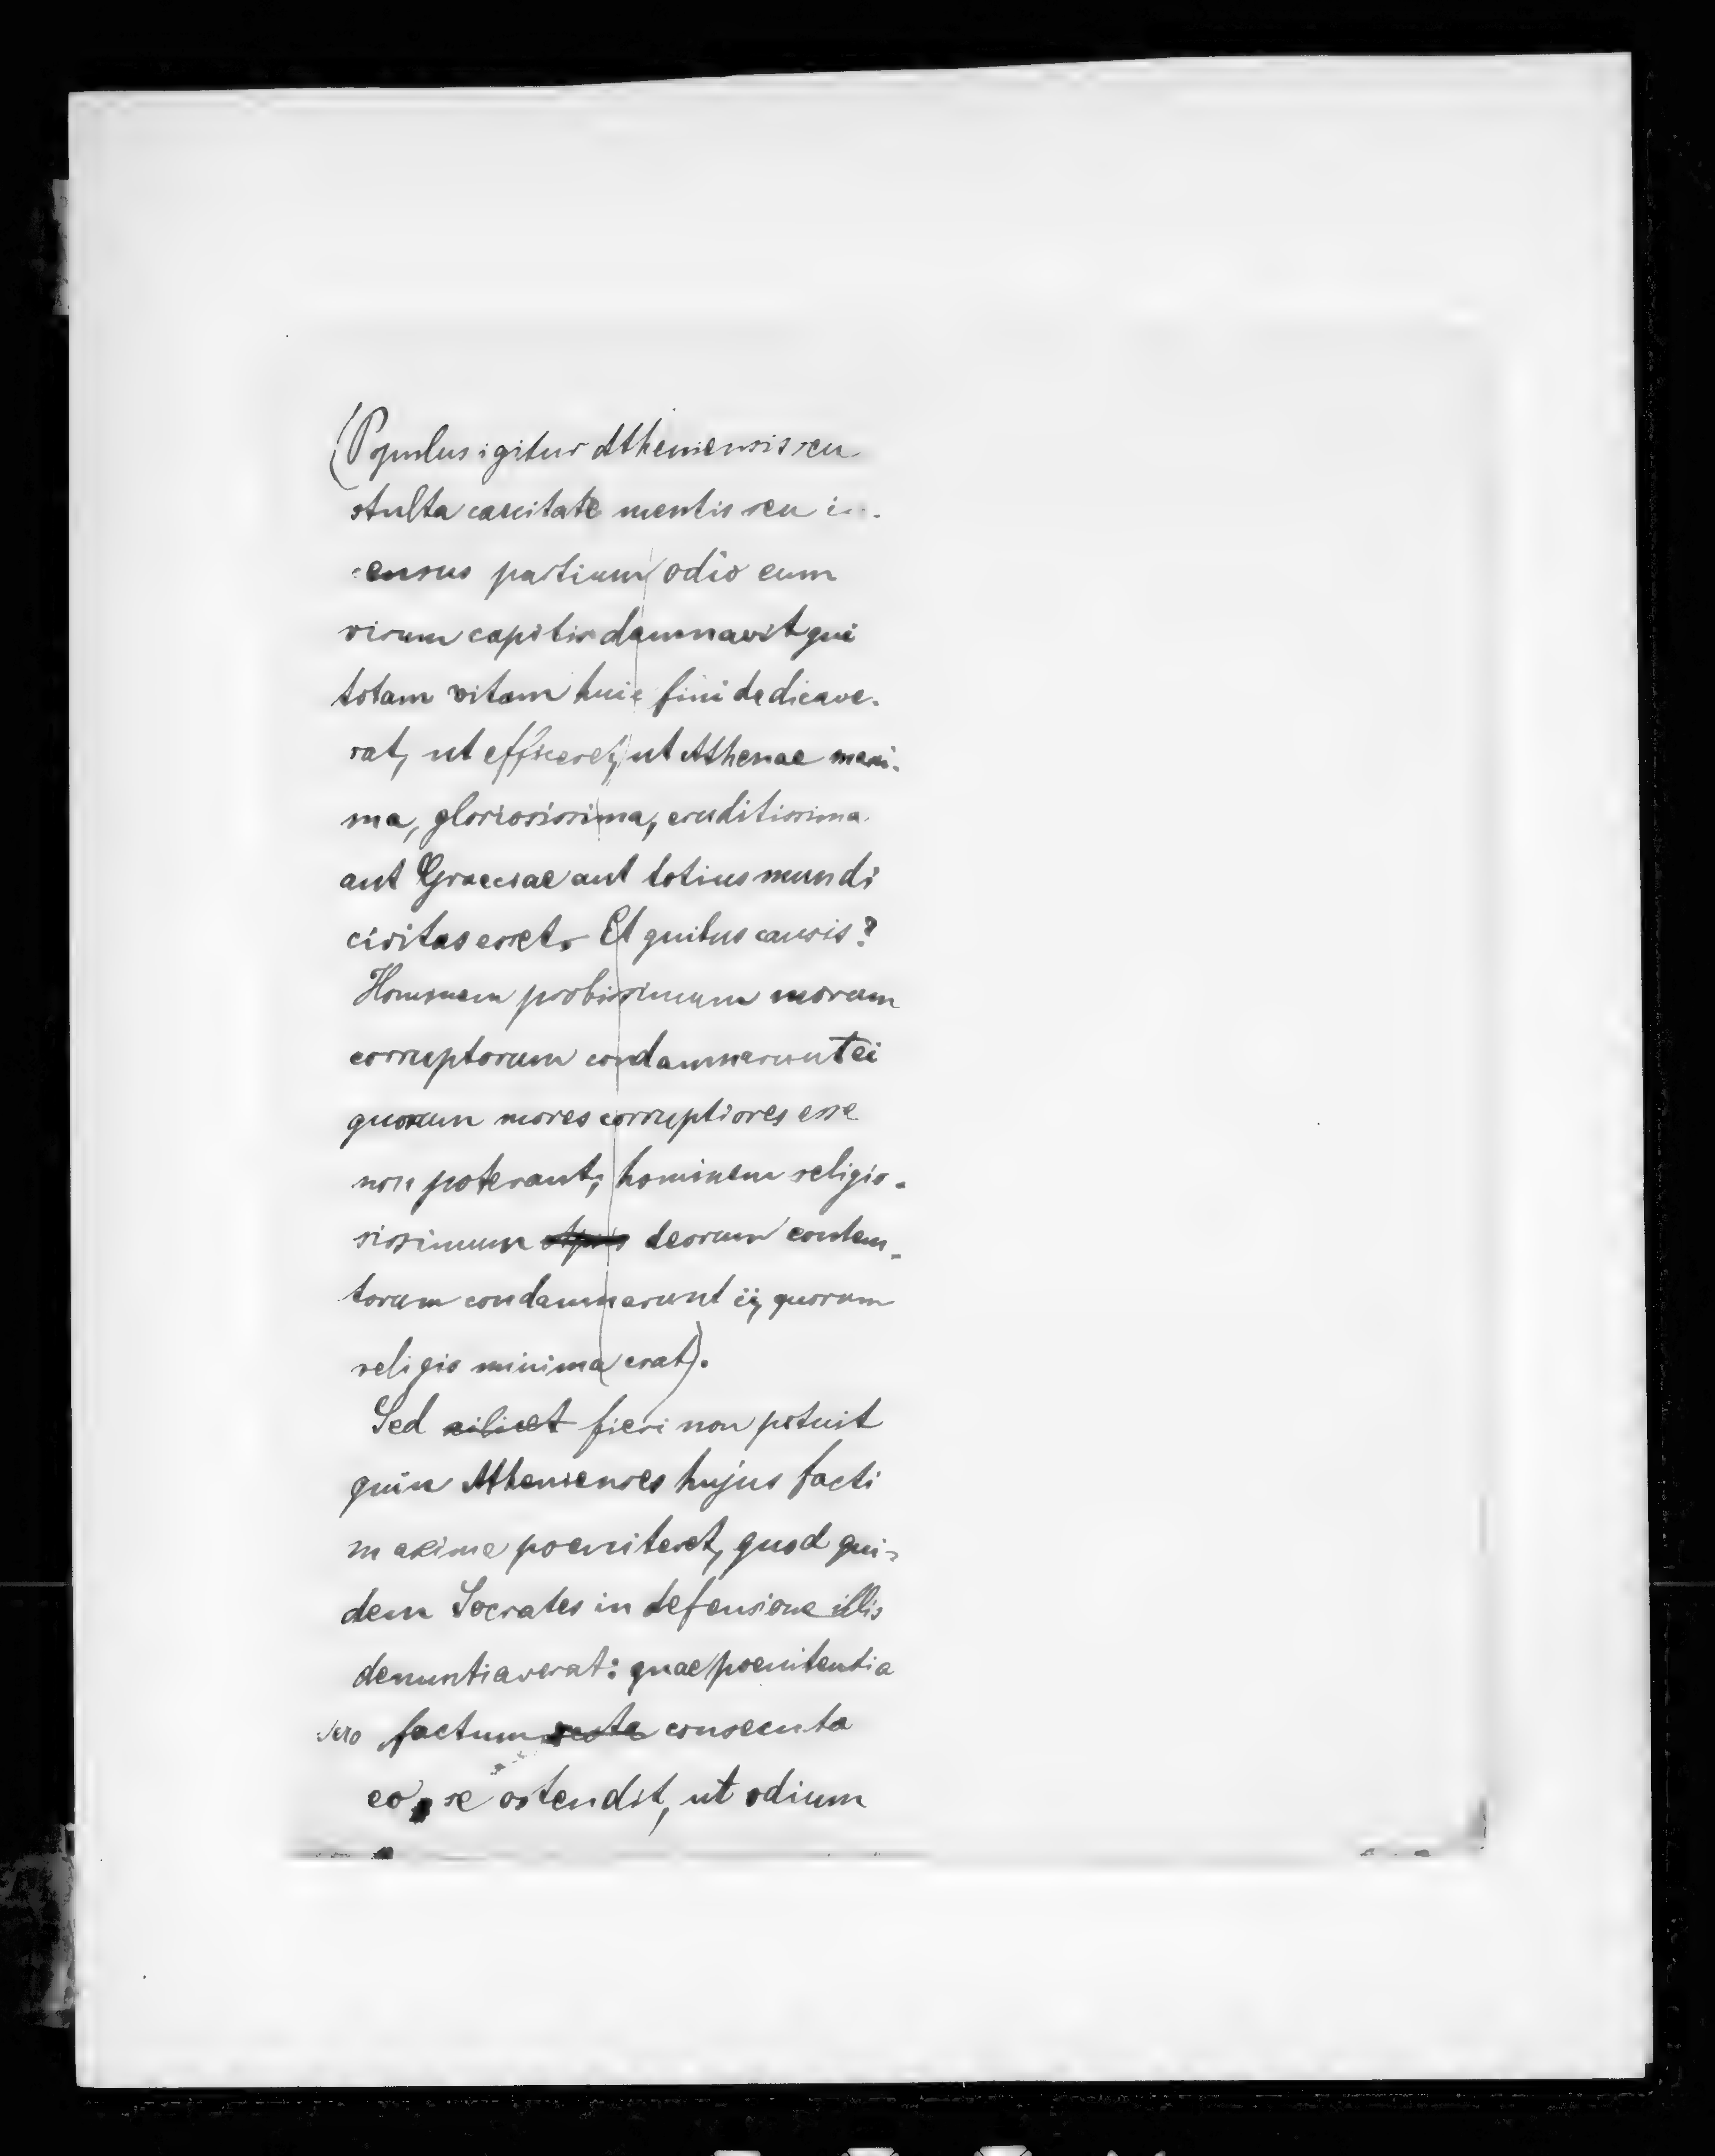 (Populus igitur Atheniensis seu
stulta caecitate mentis seu in-
census partium odio eum
virum capitis damnavit qui
totam vitam huic fini dedicave-
rat, ut efficeret, ut Athenae maxi-
ma, gloriosissima, eruditissima
aut Graeciae aut totius mundi
civitas esset. Et quibus causis?
Hominem probissimum morum
corruptorum condamnarunt ei
quorum mores corruptiores esse
non poterant; hominem religio-
sissimum deorum contem-
torum condamnarunt ii, quorum
religio minima erat).
Sed scilicet fieri non potuit
quin Athenienses hujus facti
maxime poeniteret, quod qui-
dem Socrates in defensione illis
denuntiaverat: quae poenitentia
sero factum consecuta
eo se ostendit, ut odium